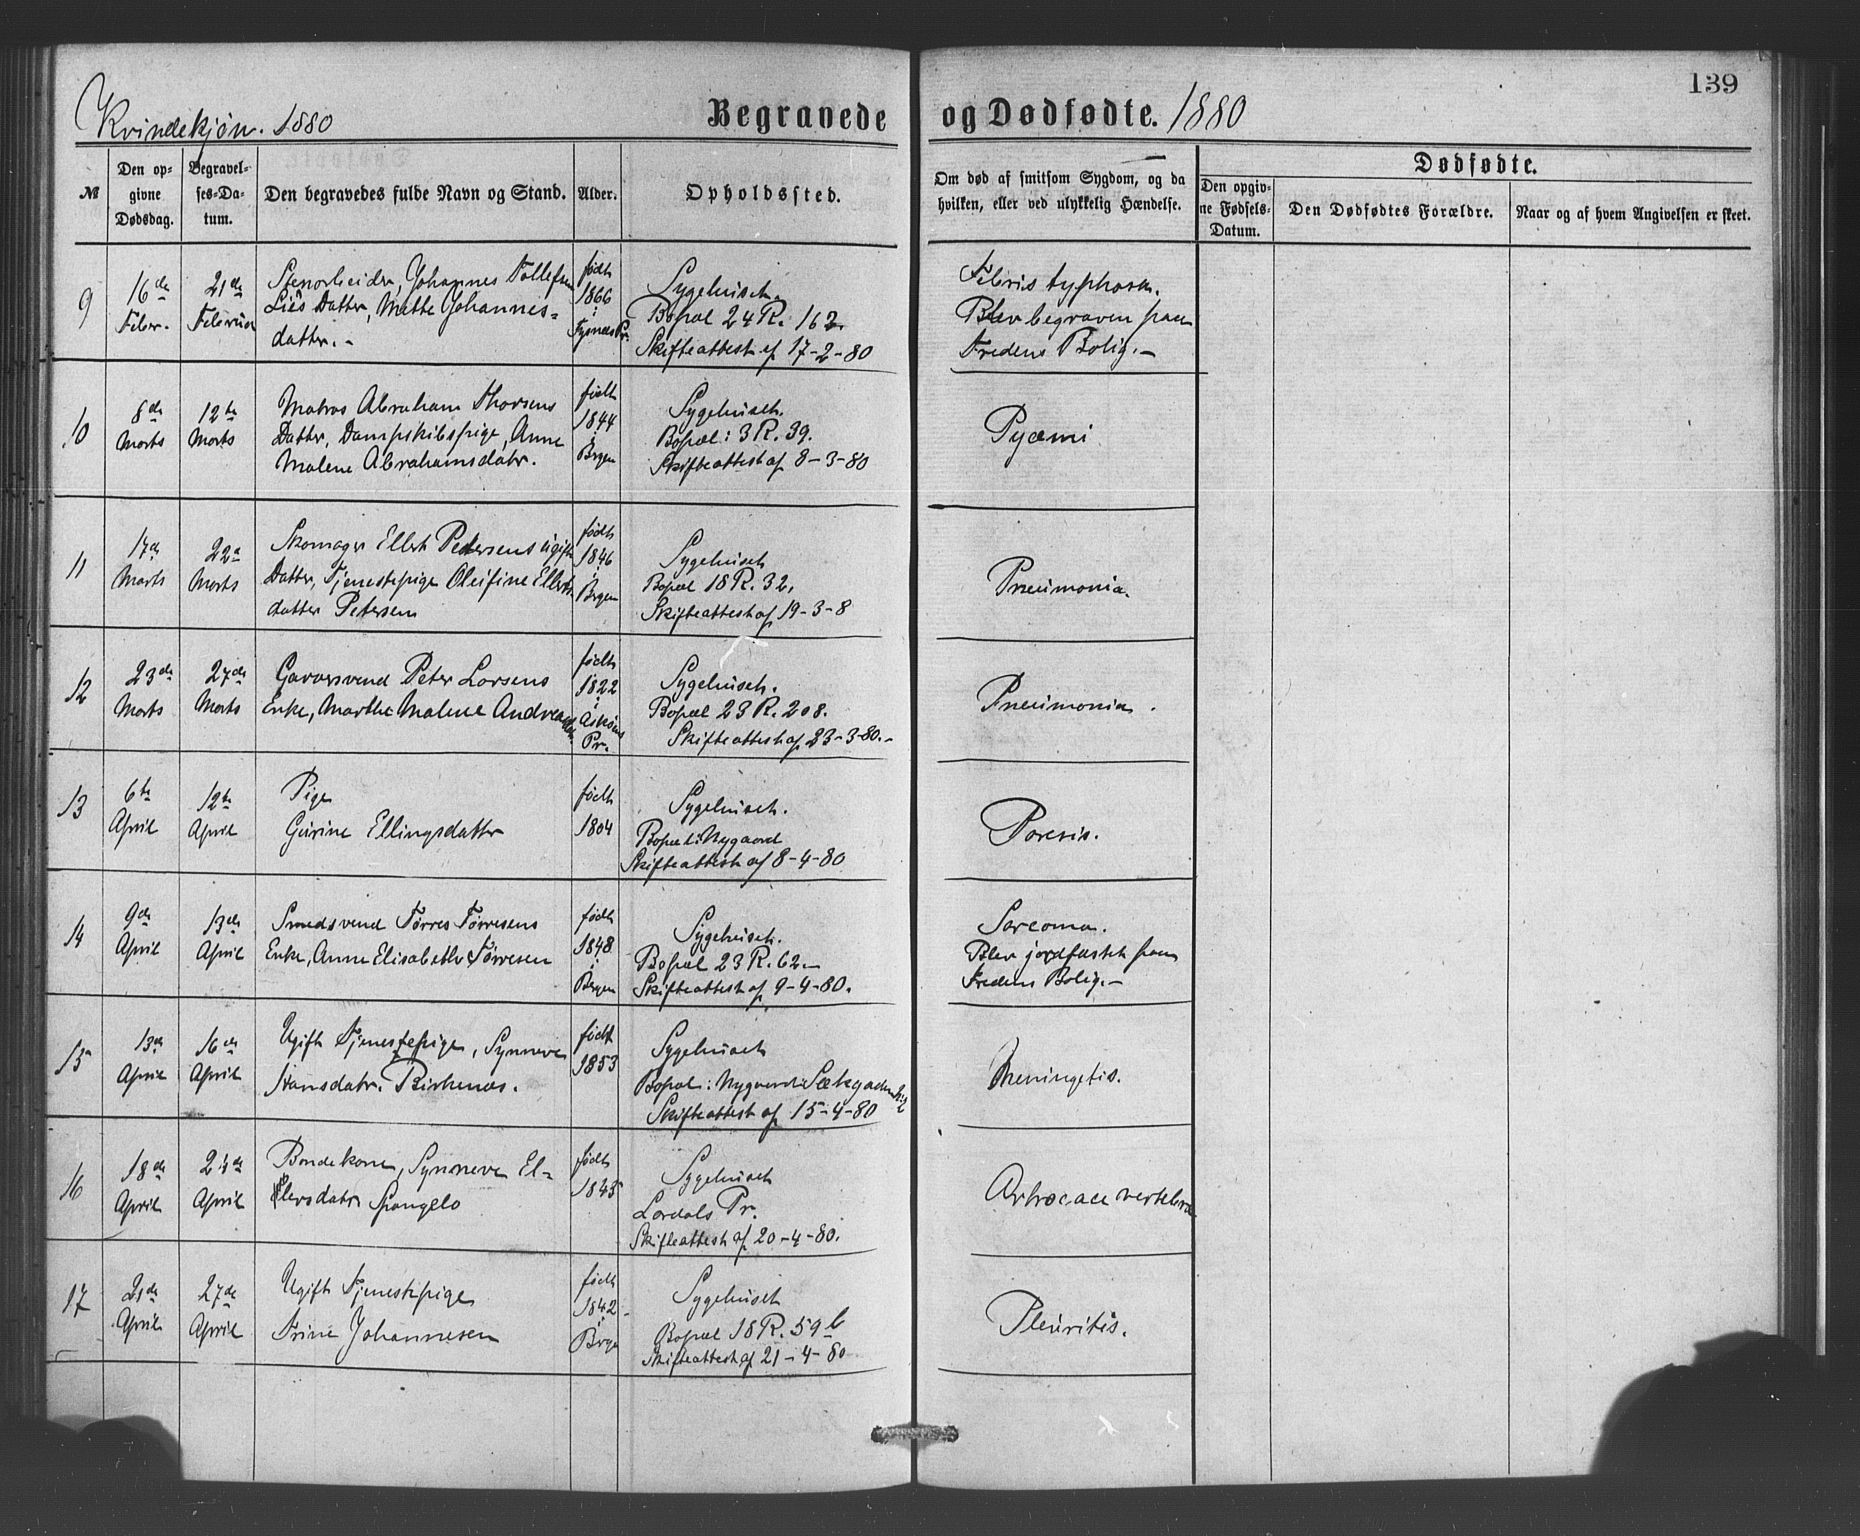 139
Kvindekjøn. 1880
Begravede og Dødfødte. 1880
№
Den op-
givne
Dødsdag.
Begravel-
ses-Da-
tum.
Den begravedes fulde Navn og Stand.
Alder.
Opholdssted.
Om død af smitsom Sygdom, og da
hvilken, eller ved ulykkelig Hændelse.
Dødfødte.
Den opgiv-
ne Fødsels-
Datum.
Den Dødfødtes Forældre.
Naar og af hvem Angivelsen er skeet.
9
16de
Febr.
21de
Februar
Stenarbeider, Johannes Tollefsen
Liës Datter, Mette Johannes-
datter.-
født
1866
i
Tysnæs Pr.
Sygehuset.
Bopæl 24 R. 162.
Skifteattest af 17-2-80
Febris typhosa.
Blev begraven paa
Fredens Bolig.-
10
8de
Marts
12te
Marts
Matros Abraham Thorsens
Datter, Dampskibspige, Anne
Malene Abrahamsdatr.
født
1844
i
Bergen
Sygehuset.
Bopæl: 3 R. 39.
Skifteattest af 8-3-80
Pyæmi
11
17de
Marts
22de
Marts
Skomager Ellert Pedersens ugifte
Datter, Tjenestepige Oleifine Ellerts
datter Petersen
født
1846
i
Bergen
Sygehuset
Bopæl 18 R. 32,
Skifteattest af 19-3-8
Pneumonia.
12
23de
Marts
27de
Marts
Garversvend Peter Larsens
Enke, Marthe Malene Andreasdtr.
født
1822
i
Askøens
Pr.
Sygehuset.
Bopæl 23 R. 208.
Skifteattest af 23-3-80.-
Pneumonia.
13
6te
April
12te
April
Pige
Gurine Ellingsdatter
født
1804
Sygehuset.
Bopæl: Nygaard
Skifteattest af 8-4-80
Paresis.
14
9de
April
13de
April
Smedsvend Tørres Tørresens
Enke, Anne Elisabeth Tørresen
født
1848
i
Bergen
Sygehuset.
Bopæl 23 R. 62.-
Skifteattest af 9-4-80.
Sarcoma.
Blev jordfæstet paa
Fredens Bolig.-
15
13de
April
16de
April
Ugift Tjenestepige, Synneve
Hansdatr. Kirkenæs.
født
1853
Sygehuset
Bopæl: Nygaard
Skifteattest af 15-4-80
Meningetis.
16
18de
April
24de
April
Bondekone, Synneve El-
lersdatr Spangelo
født
1845
Sygehuset
Lærdals Pr.
Skifteattest af 20-4-80.
Artrocace vertebræ
17
21de
April
27de
April
Ugift Tjenestepige
Trine Johannesen
født
1842
i
Bergen
Sygehuset
Bopæl 18 R. 59b
Skifteattest af 21-4-80
Pleuritis.